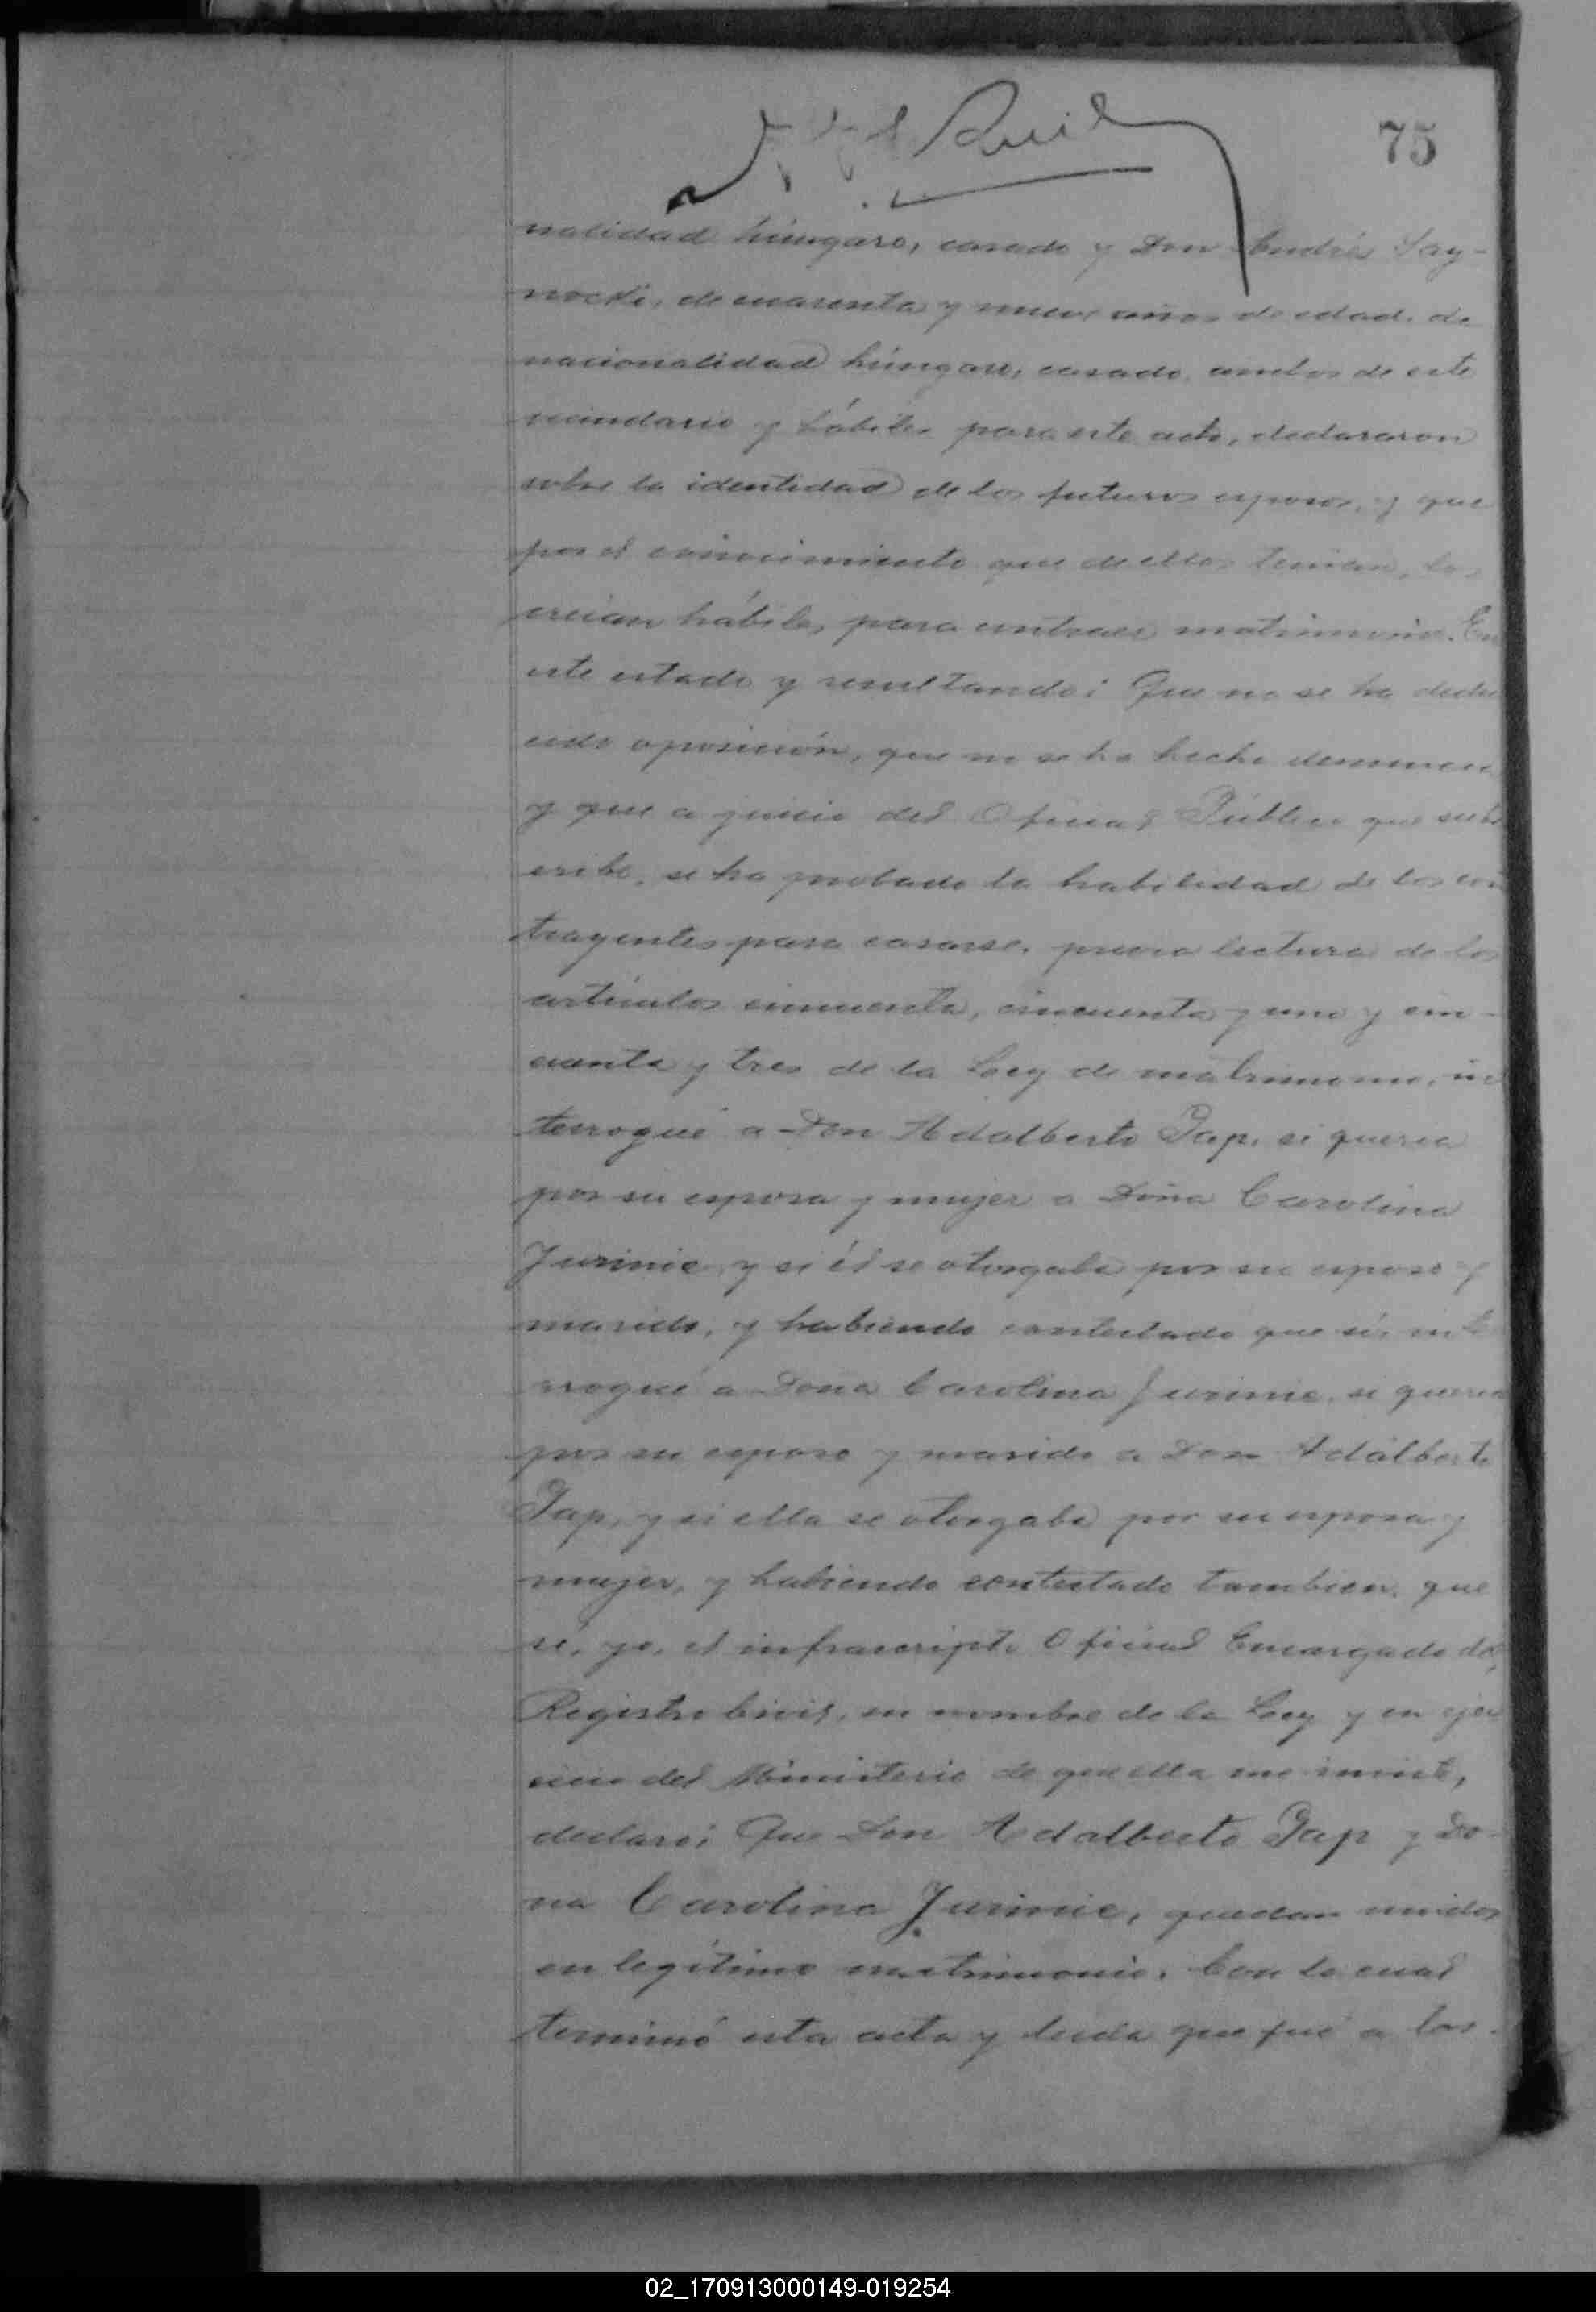 75
nalidad húngaro, casado y Don Andrés Say-
nocki, de cuarenta y nueve años de edad, de
nacionalidad húngaro, casado, ambos de este
vecindario y hábiles para este acto, declararon
sobre la identidad de los futuros esposos, y que
por el conocimiento que de ellos tenian, los
creian hábiles para contraer matrimonio. En
este estado y resultando: Que no se ha dedu
cido oposición, que no se ha hecho denuncia
y que a juicio del Oficial Público que subs
cribe, se ha probado la habilidad de los con
trayentes para casarse, previa lectura de los
artículos cincuenta, cincuenta y uno y cin-
cuenta y tres de la Ley de matrimonio, in
terrogué a Don Adalberto Pap, si queria
por su esposa y mujer a Doña Carolina
Jurinic y si él se otorgaba por su esposo y
marido, y habiendo contestado que sí, inte
rrogué a Doña Carolina Jurinic, si queria
por su esposo y marido a Don Adalberto
Pap, y si ella se otorgaba por su esposa y
mujer, y habiendo contestado tambien, que
sí, yo, el infrascripto Oficial Encargado del
Registro Civil, en nombre de la Ley y en ejer
cicio del Ministerio de que ella me inviste,
declaro: Que Don Adalberto Pap y Do-
ña Carolina Jurinic, quedan unidos
en legítimo matrimonio. Con lo cual
terminó esta acta y leida que fué a los
02_170913000149-019254